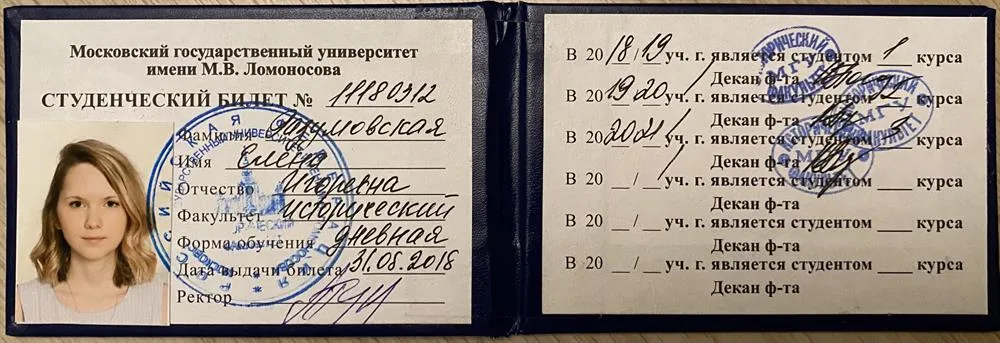 Московский государственный университет
имени М.В. Ломоносова
СТУДЕНЧЕСКИЙ БИЛЕТ № 11180312
Фамилия Разумовская
Имя Елена
Отчество Игоревна
Факультет исторический
Форма обучения дневная
Дата выдачи билета 31.08.2018
Ректор
В 2018/19 уч. г. является студентом 1 курса
Декан ф-та
В 2019 20/ уч. г. является студентом курса
Декан ф-та
В 202021/ уч. г. является студентом 3 курса
Декан ф-та
В 20 __/__ уч. г. является студентом ___ курса
Декан ф-та
В 20 __/__ уч. г. является студентом ___ курса
Декан ф-та
В 20 __/__ уч. г. является студентом ___ курса
Декан ф-та
ИСТОРИЧЕСКИЙ
МГУ
ФАКУЛЬТЕТ